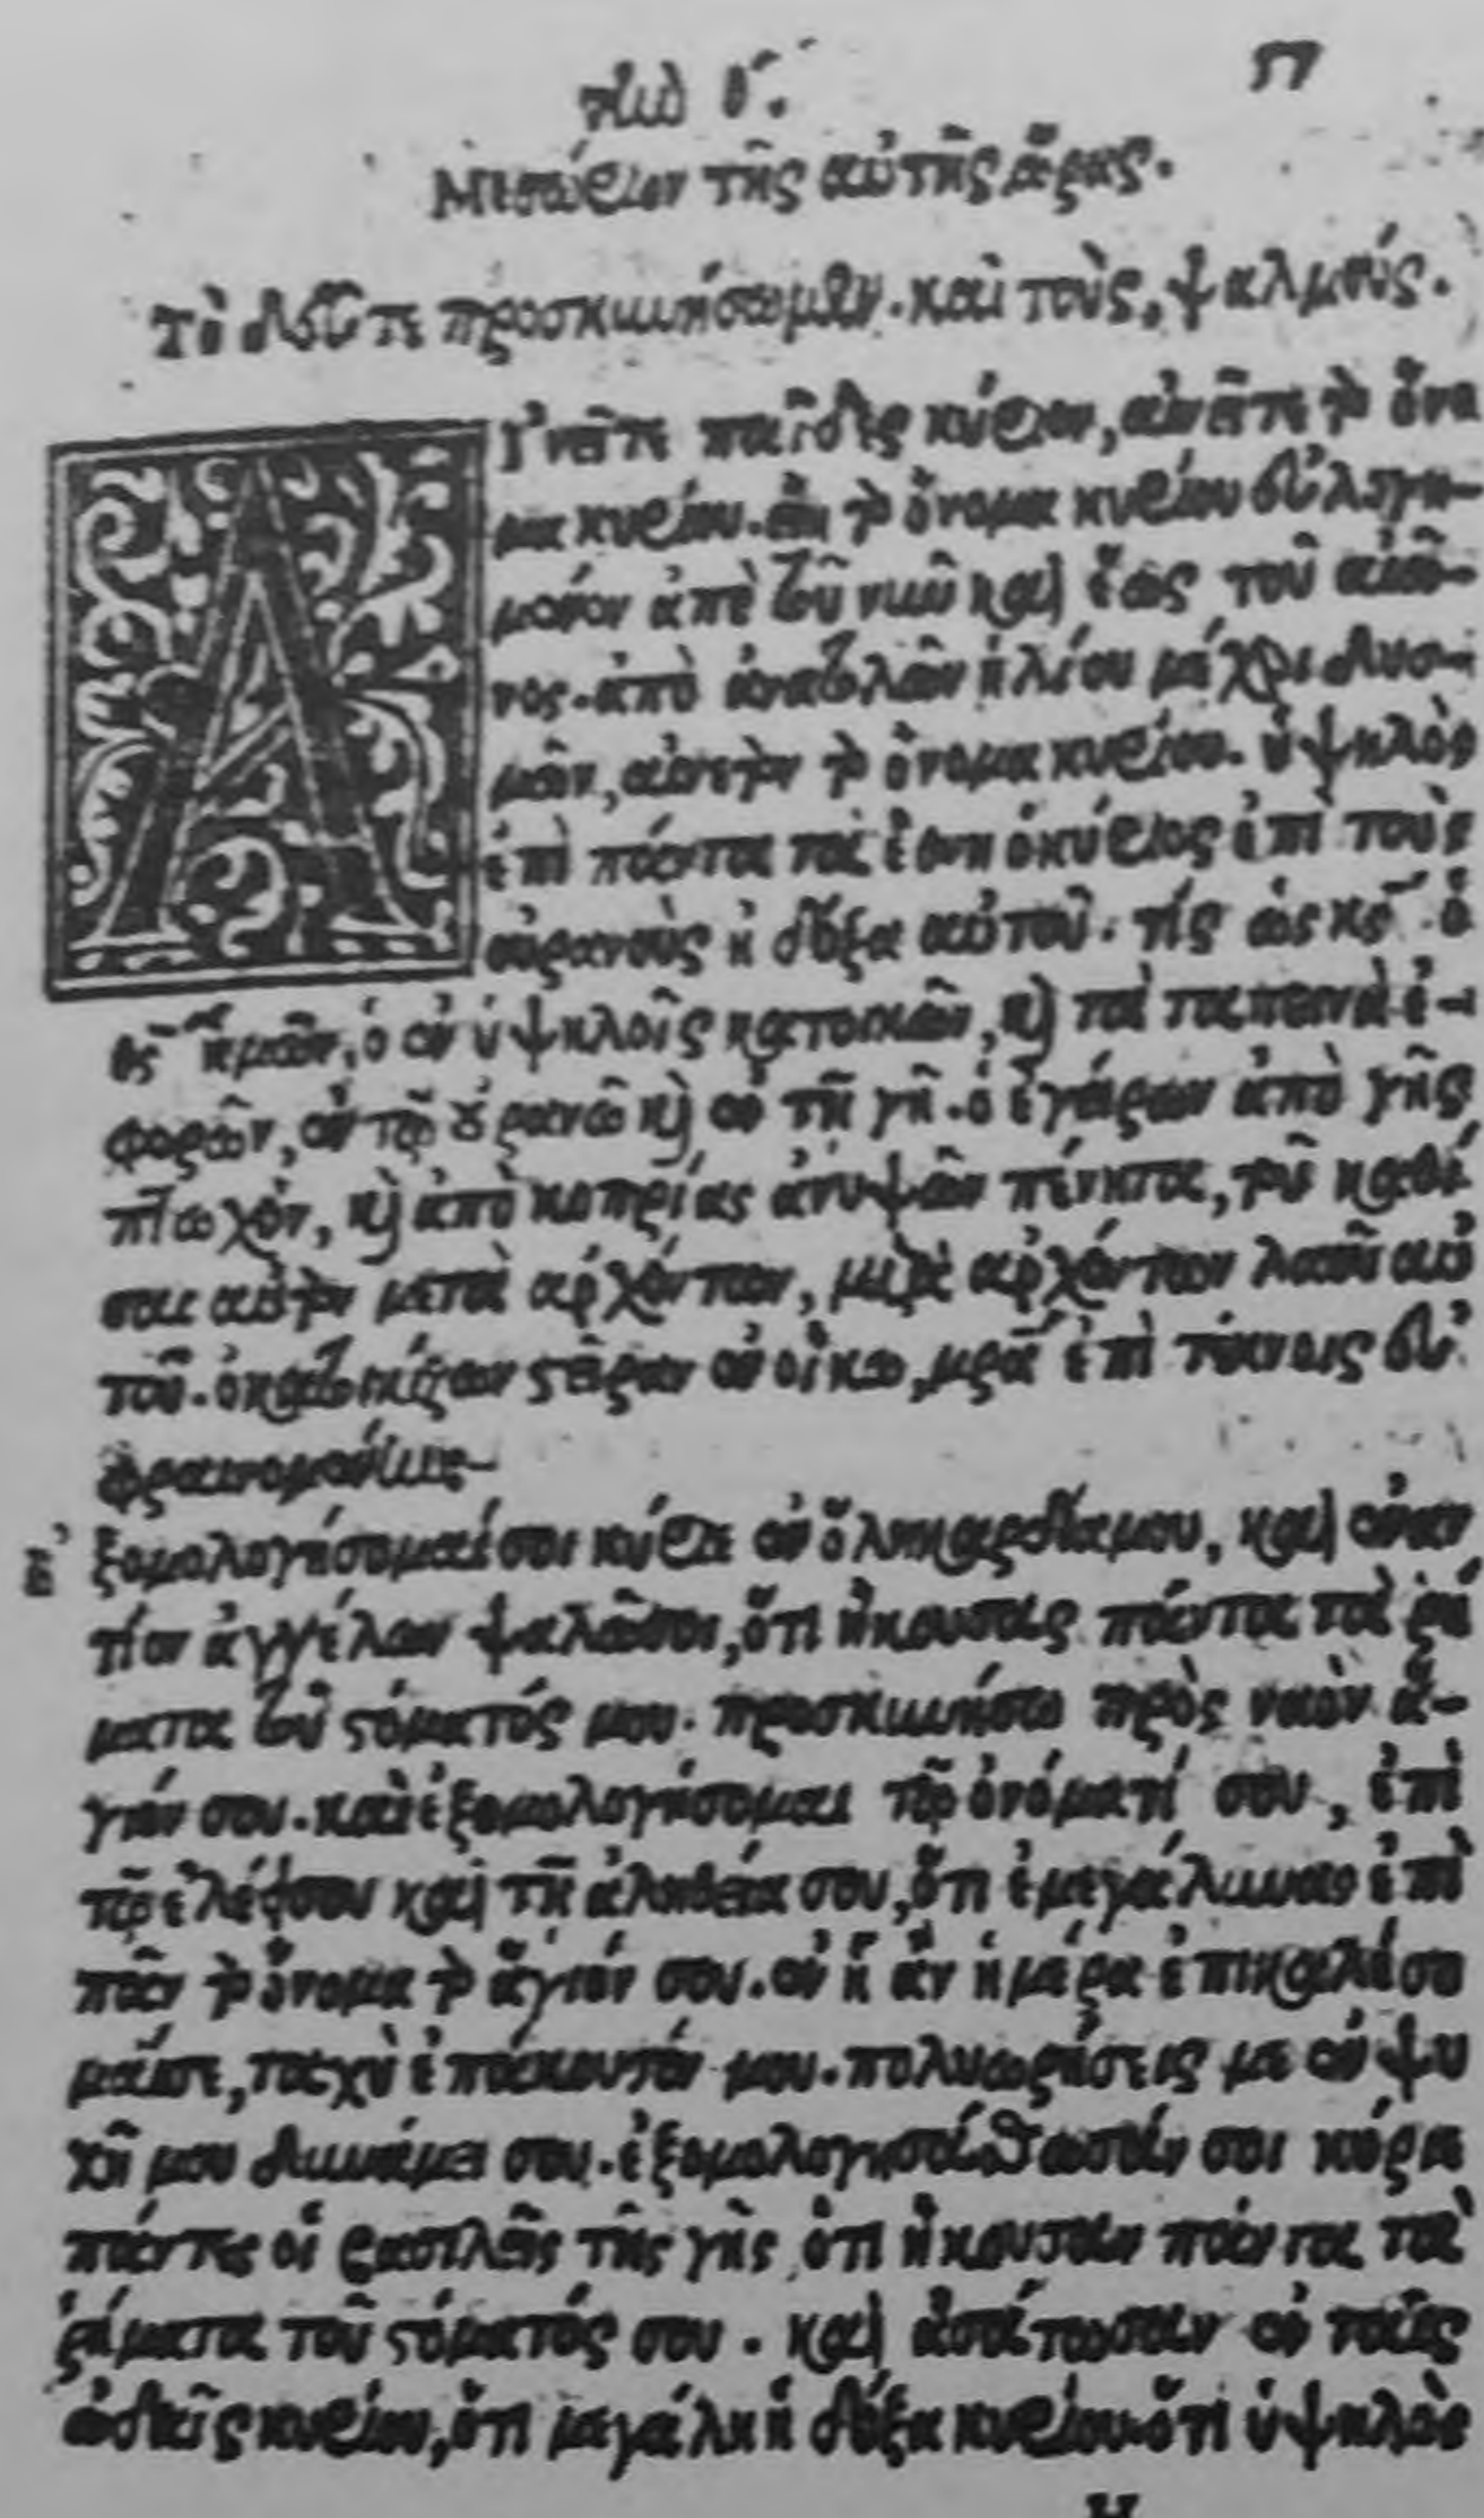 π
Μεσώριον τῆς αὐτῆς ὥρας.
Τὸ δεῦτε προσκυνήσωμεν. καὶ τοὺς, ψαλμούς.
Αἰνεῖτε παῖδες κύριον, αἰνεῖτε τὸ ὄνο
μα κυρίου. εἴη τὸ ὄνομα κυρίου εὐλογη-
μένον ἀπὸ τοῦ νῦν καὶ ἕως τοῦ αἰῶ-
νος. ἀπὸ ἀνατολῶν ἡλίου μέχρι δυσ-
μῶν, αἰνετὸν τὸ ὄνομα κυρίου. ὑψηλὸς
ἐπὶ πάντα τὰ ἔθνη ὁ κύριος ἐπὶ τοὺς
οὐρανοὺς ἡ δόξα αὐτοῦ. τίς ὡς κς ὁ
θς ἡμῶν, ὁ ἐν ὑψηλοῖς κατοικῶν, καὶ τὰ ταπεινὰ ἐ-
φορῶν, ἐν τῷ οὐρανῷ καὶ ἐν τῇ γῇ. ὁ ἐγείρων ἀπὸ γῆς
πτωχὸν, καὶ ἀπὸ κοπρίας ἀνυψῶν πένητα, τοῦ καθί
σαι αὐτὸν μετὰ ἀρχόντων, μετὰ ἀρχόντων λαοῦ αὐ
τοῦ. ὁ κατοικίζων στεῖραν ἐν οἴκῳ, μρα ἐπὶ τέκνοις εὐ
φραινομένην
Ἐξομολογήσομαί σοι κύριε ἐν ὅλῃ καρδίᾳ μου, καὶ ἐναν
τίον ἀγγέλων ψαλῶ σοι, ὅτι ἤκουσας πάντα τὰ ῥή
ματα τοῦ στόματός μου. προσκυνήσω πρὸς ναὸν ἅ-
γιόν σου. καὶ ἐξομολογήσομαι τῷ ὀνόματί σου, ἐπὶ
τῷ ἐλέει σου καὶ τῇ ἀληθείᾳ σου, ὅτι ἐμεγάλυνας ἐπὶ
πᾶν τὸ ὄνομα τὸ ἅγιόν σου. ἐν ᾗ ἂν ἡμέρα ἐπικαλέσω
μαί σε, ταχὺ ἐπάκουσόν μου. πολυωρήσεις με ἐν ψυ
χῇ μου δυνάμει σου. ἐξομολογησάσθωσάν σοι κύριε
πάντες οἱ βασιλεῖς τῆς γῆς, ὅτι ἤκουσαν πάντα τὰ
ῥήματα τοῦ στόματός σου. καὶ ᾀσάτωσαν ἐν ταῖς
ᾠδαῖς κυρίου, ὅτι μεγάλη ἡ δόξα κυρίου. ὅτι ὑψηλὸς